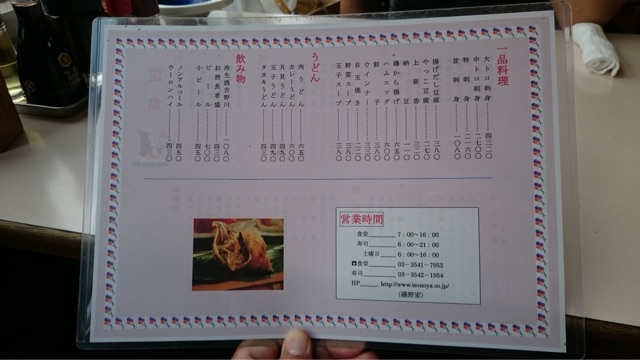 一品料理
大トロ刺身 四三二〇
中トロ刺身 二七〇〇
特刺身 二一六〇
並刺身 一〇八〇
揚げだし豆腐 三八〇
やっこ豆腐 二七〇
上新香
納豆 一一〇
鶏から揚げ 六五〇
ハムエッグ 六〇〇
ウインナー
餃子 四三〇
目玉焼き
野菜スープ 三八〇
玉子スープ 三八〇
うどん
肉うどん 六五〇
カレーうどん 六〇〇
月見うどん 四九〇
玉子うどん 四九〇
タヌキうどん 四三〇
飲み物
冷生酒吉野川 一〇八〇
お酒長者盛 四三〇
ビール 七〇〇
小ビール 五四〇
ノンアルコール 四五〇
ウーロンハイ 四三〇
営業時間
食堂 7：00～16：00
寿司 6：00～21：00
土曜日 6：00～16：00
☎食堂 03－3541－7953
寿司 03－3542－1954
HP http://www.isonoya.co.jp/
(磯野家)